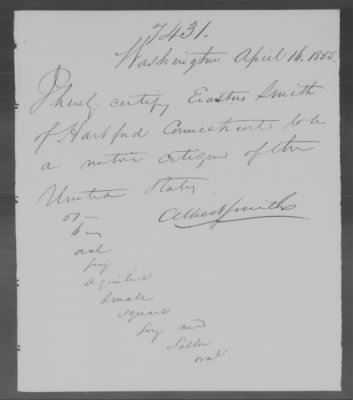 7431.
Washington April 16. 1855.
I hereby certify Erastus Smith
of Hartford Connecticut to be
a native citizen of the
United States
Albert Smith
oval
aquiline
small
square
sallow
oval